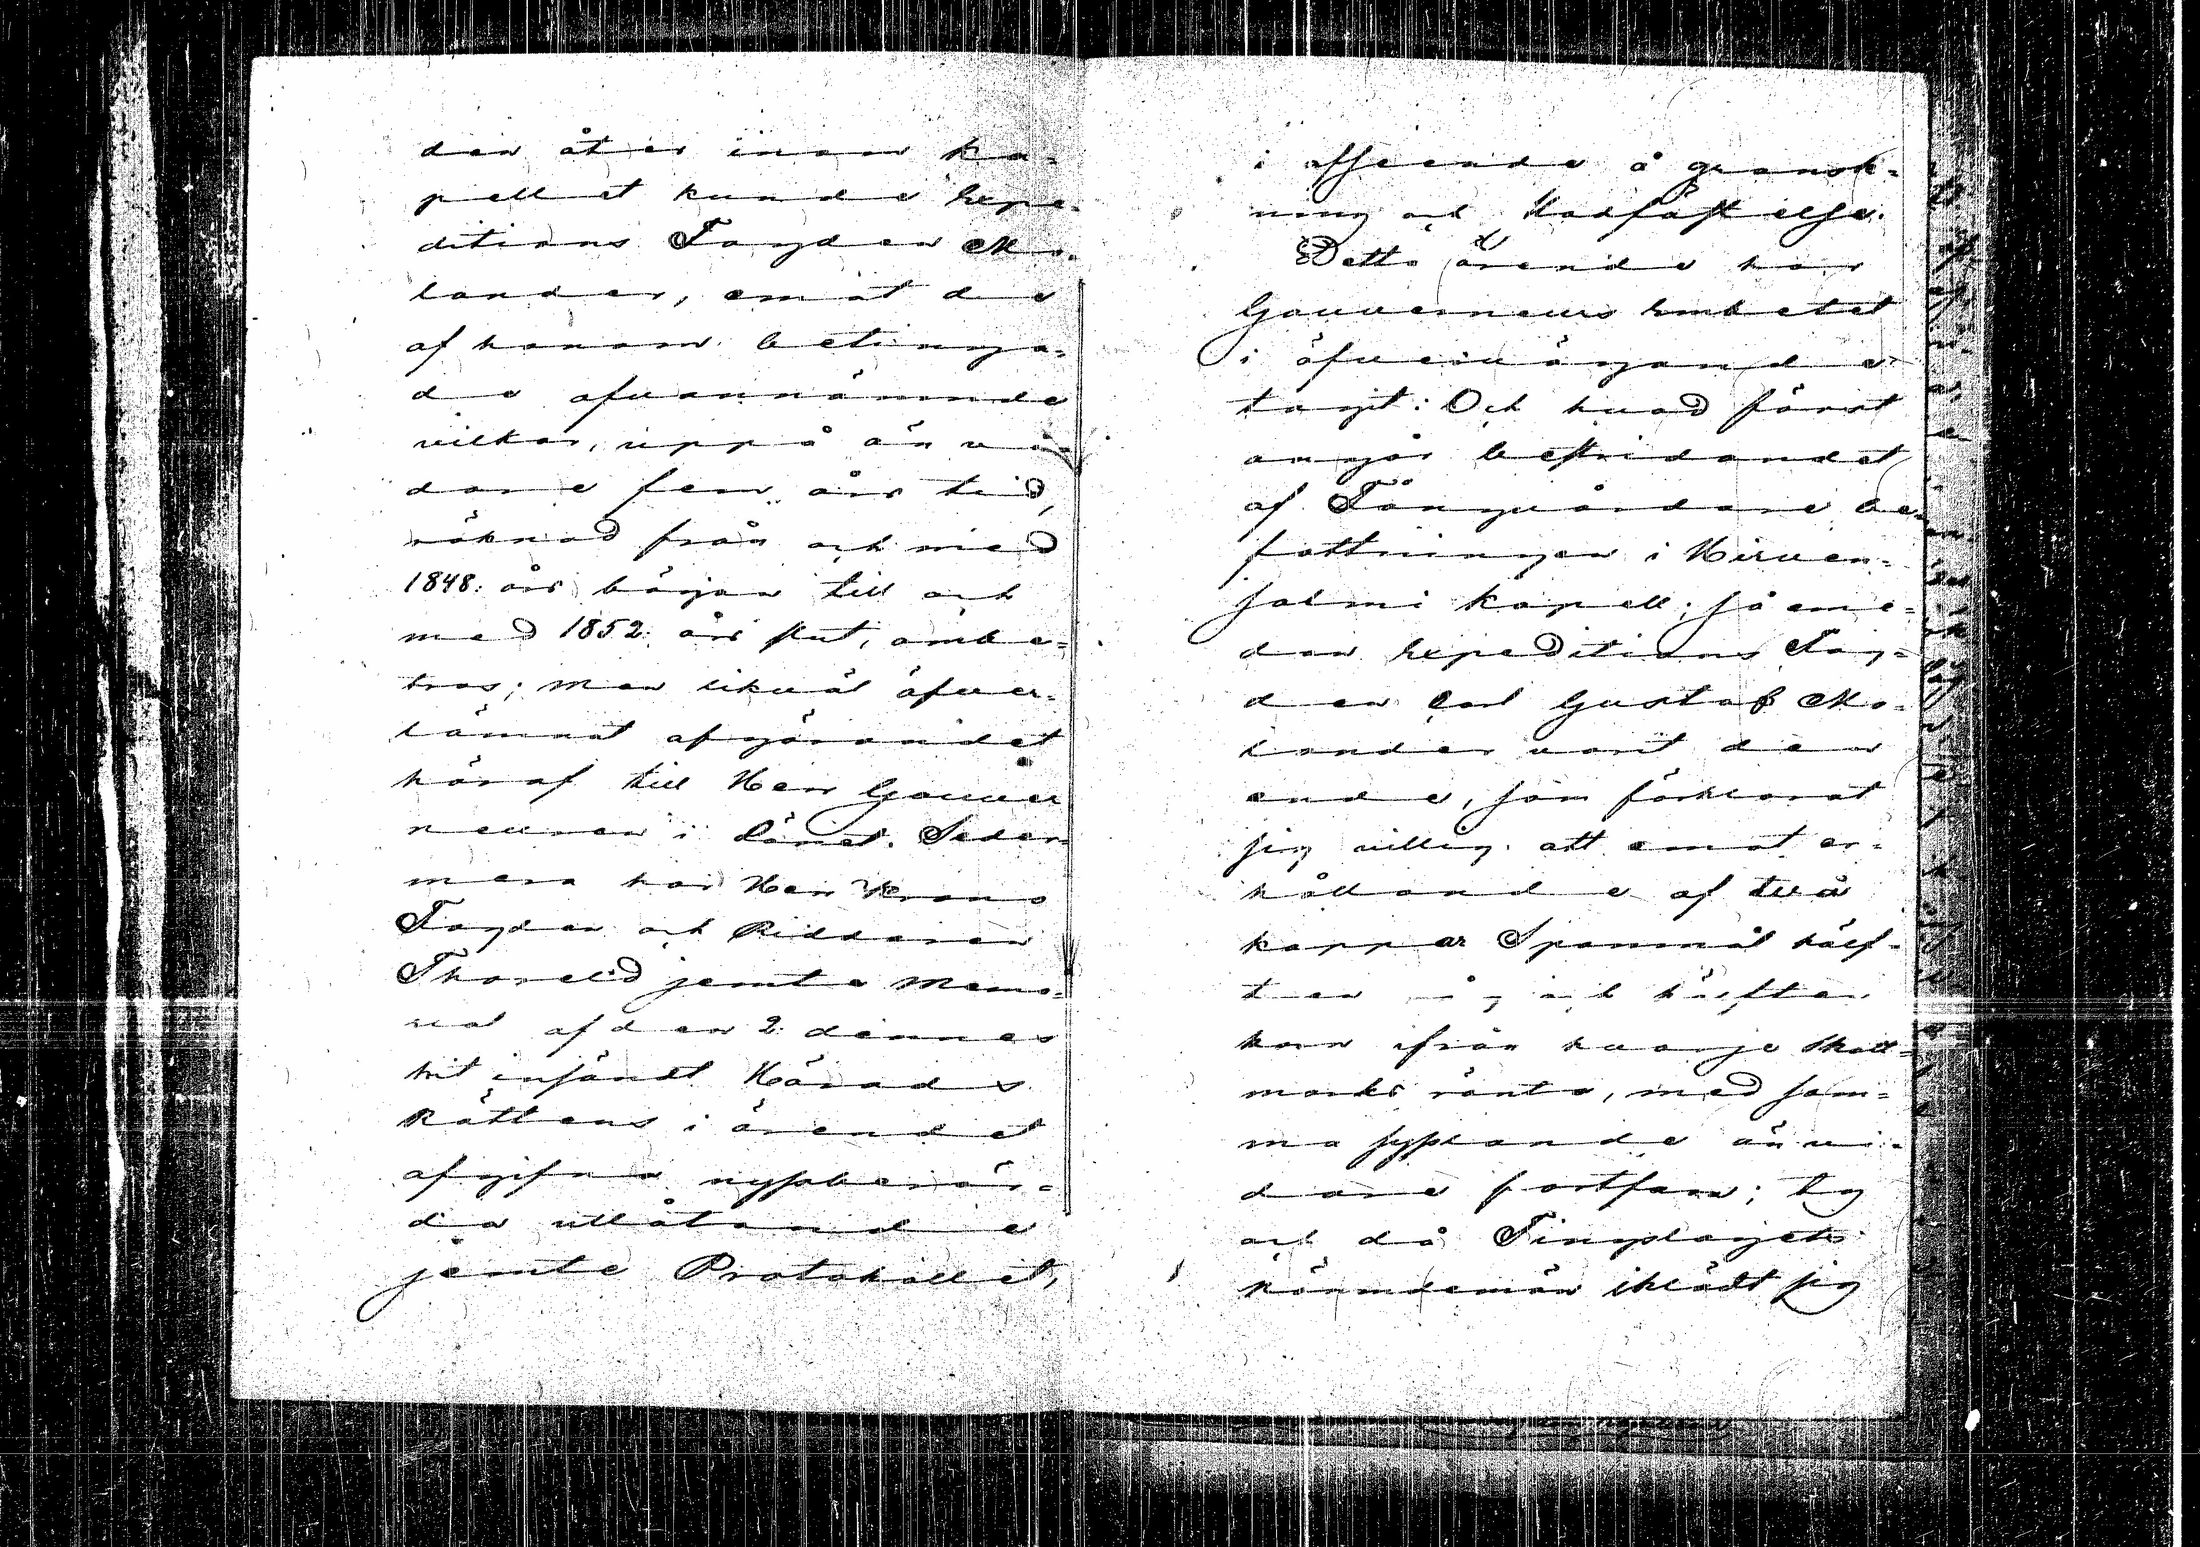 den åter inom ka-
pellet kunde Expe-
ditions Fogden Mo-
lander, emot de
af honom betinga-
de ofvannämnde
vilkor, uppå än vi-
dare fem års tid,
räknad från och med
1848: års början till och
med 1852: års slut, ombe-
tros; men likväl öfver-
lämnat afgörandet
häraf till Herr Gouver
neuren i Länet. Seder-
mera har Herr Krono
Fogden och Riddaren
Thoreld jemte Memo-
rial af den 2 dennes
hit insändt Härads
Rättens i ärendet
afgifna nyssberör-
da utlåtande
jemte Protokollet,
i afseende å gransk-
ning och Stadfästelse.
Detta ärende har
Gouverneurs Embetet
i öfvervägande
tagit: Och hvad först
angår bestridandet
af Fångvårdare be-
fattningen i Hirven-
salmi kapell; så eme-
dan Expeditions Fog-
den Carl Gustaf Mo-
lander varit den
ende, som förklarat
sig villig att emot er-
hållande af två
kappar Spanmål hälf-
ten råg och hälften
korn ifrån hvarje Skatt-
marks ränta, med sam-
ma syssland än vi-
dare fortfara; ty
och då Tingslagets
nämndemän iklädt sig